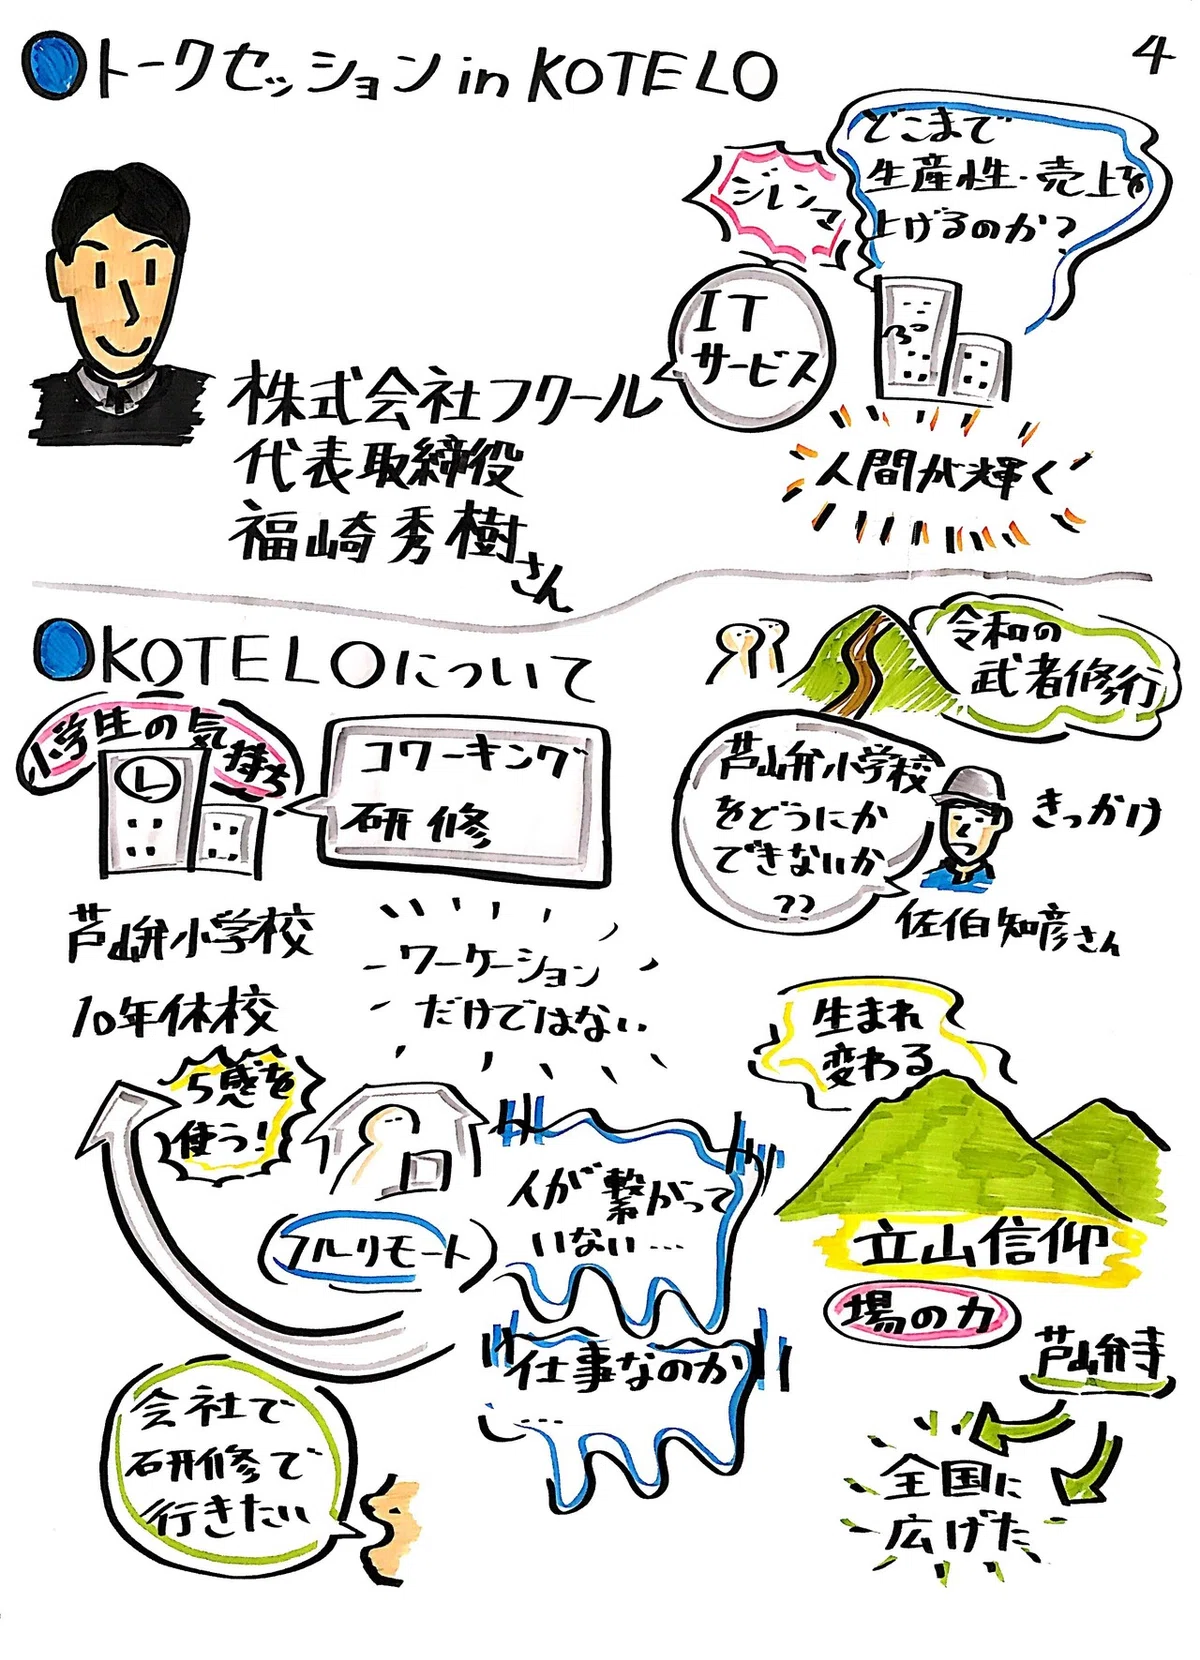 トークセッション in KOTELO
4
どこまで
生産性・売上を
上げるのか?
ジレンマ
IT
サービス
株式会社フクール
代表取締役
福崎秀樹さん
人間が輝く
KOTELOについて
令和の
武者修行
小学生の気持ち
コワーキング
研修
芦峅小学校
をどうにか
できないか
??
きっかけ
佐伯知彦さん
芦峅小学校
10年休校
ワーケーション
だけではない
生まれ
変わる
5感を
使う!
人が繋がって
いない…
フルリモート
立山信仰
場の力
芦峅寺
仕事なのか
....
会社で
研修で
行きたい
全国に
広げた